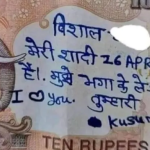 विशाल
मेरी शादी 26 APR
हैं। मुझे भगा के ले
I ♡ you. तुम्हारी
KUSUM
TEN RUPEES